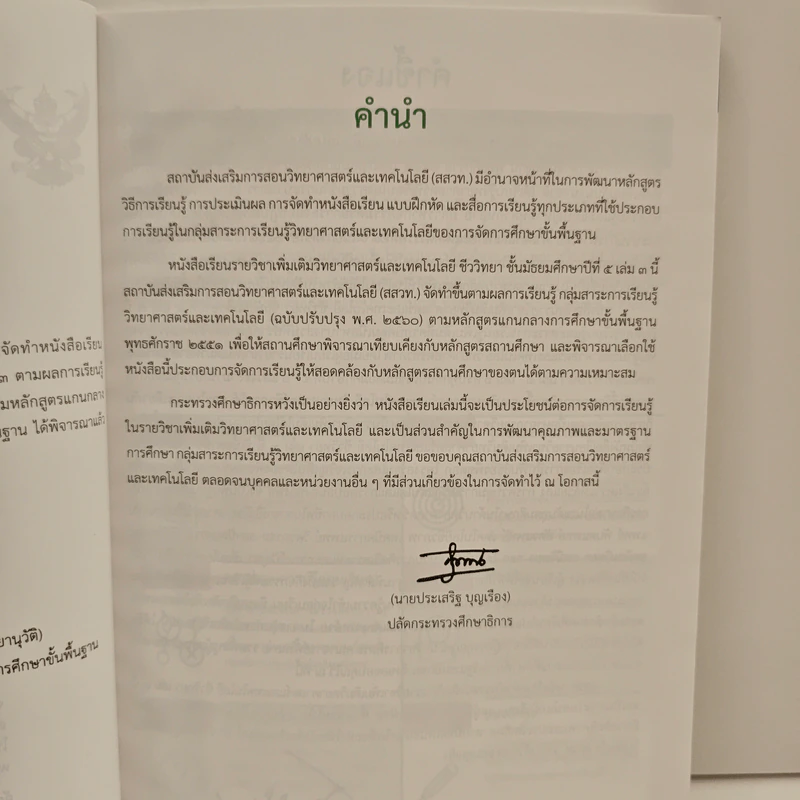 จัดทำหนังสือเรียน
๓ ตามผลการเรียนรู้
มหลักสูตรแกนกลาง
ฐาน ได้พิจารณาแล้ว
ยานุวัติ)
การศึกษาขั้นพื้นฐาน
คำนำ
สถาบันส่งเสริมการสอนวิทยาศาสตร์และเทคโนโลยี (สสวท.) มีอำนาจหน้าที่ในการพัฒนาหลักสูตร
วิธีการเรียนรู้ การประเมินผล การจัดทำหนังสือเรียน แบบฝึกหัด และสื่อการเรียนรู้ทุกประเภทที่ใช้ประกอบ
การเรียนรู้ในกลุ่มสาระการเรียนรู้วิทยาศาสตร์และเทคโนโลยีของการจัดการศึกษาขั้นพื้นฐาน
หนังสือเรียนรายวิชาเพิ่มเติมวิทยาศาสตร์และเทคโนโลยี ชีววิทยา ชั้นมัธยมศึกษาปีที่ ๕ เล่ม ๓ นี้
สถาบันส่งเสริมการสอนวิทยาศาสตร์และเทคโนโลยี (สสวท.) จัดทำขึ้นตามผลการเรียนรู้ กลุ่มสาระการเรียนรู้
วิทยาศาสตร์และเทคโนโลยี (ฉบับปรับปรุง พ.ศ. ๒๕๖๐) ตามหลักสูตรแกนกลางการศึกษาขั้นพื้นฐาน
พุทธศักราช ๒๕๕๑ เพื่อให้สถานศึกษาพิจารณาเทียบเคียงกับหลักสูตรสถานศึกษา และพิจารณาเลือกใช้
หนังสือนี้ประกอบการจัดการเรียนรู้ให้สอดคล้องกับหลักสูตรสถานศึกษาของตนได้ตามความเหมาะสม
กระทรวงศึกษาธิการหวังเป็นอย่างยิ่งว่า หนังสือเรียนเล่มนี้จะเป็นประโยชน์ต่อการจัดการเรียนรู้
ในรายวิชาเพิ่มเติมวิทยาศาสตร์และเทคโนโลยี และเป็นส่วนสำคัญในการพัฒนาคุณภาพและมาตรฐาน
การศึกษา กลุ่มสาระการเรียนรู้วิทยาศาสตร์และเทคโนโลยี ขอขอบคุณสถาบันส่งเสริมการสอนวิทยาศาสตร์
และเทคโนโลยี ตลอดจนบุคคลและหน่วยงานอื่น ๆ ที่มีส่วนเกี่ยวข้องในการจัดทำไว้ ณ โอกาสนี้
(นายประเสริฐ บุญเรือง)
ปลัดกระทรวงศึกษาธิการ